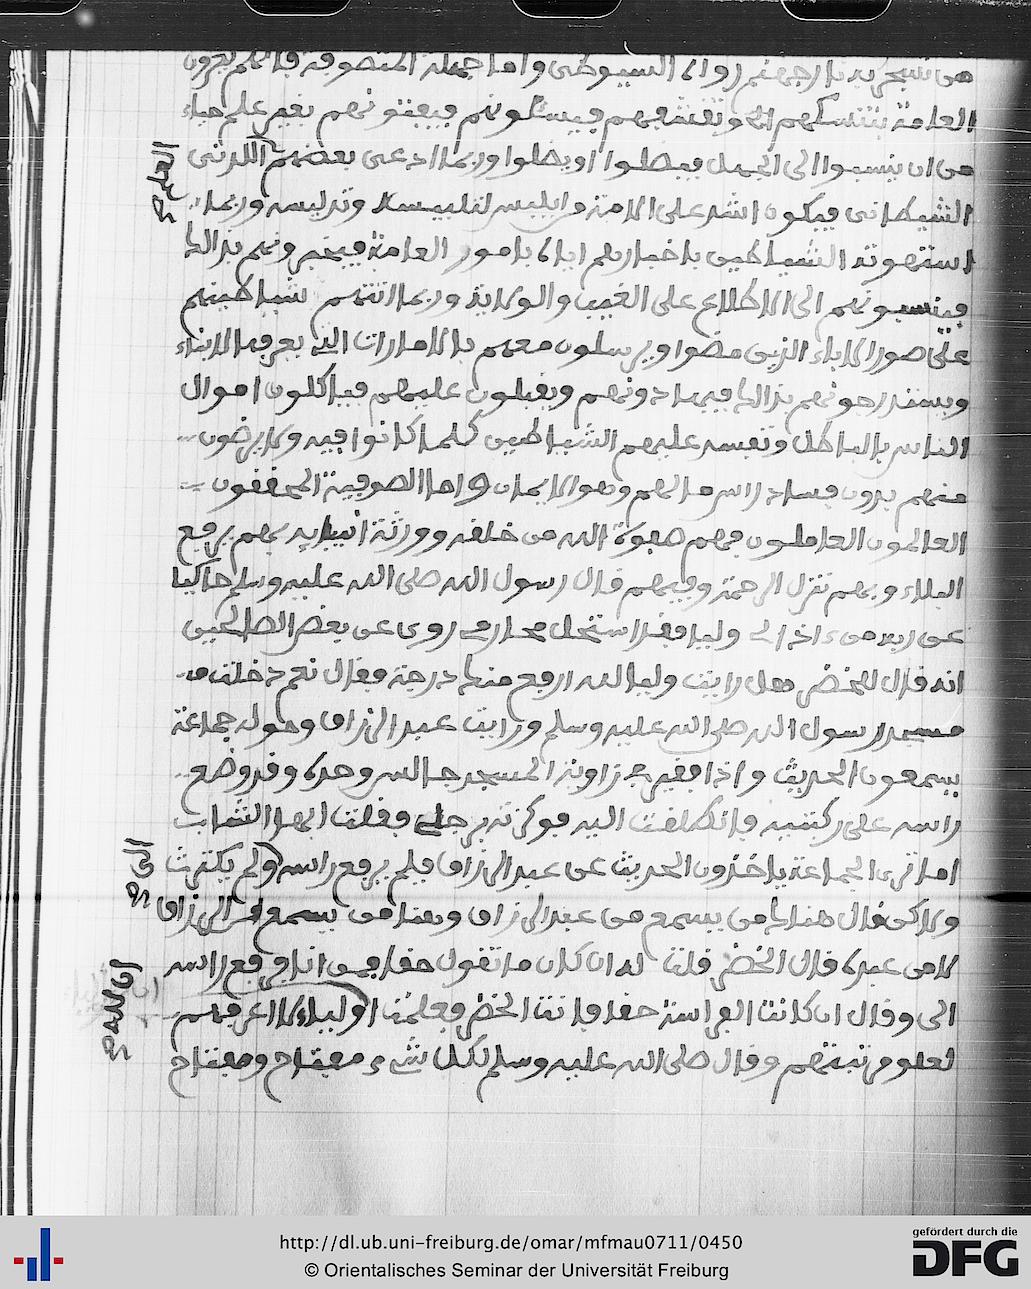 من شيخ يريد بارجهنم رواه السيوطي واما جهلة المتصوفة فانهم يغرون
العامة بتنسكهم وتقشفهم فيسئلونهم فيفتونهم بغير علم حياء
من ان ينسبوا الى الجهل فيضلوا او يضلوا وربما ادعى بعضهم الكشف
العلم صح
الشيطاني فيكون اشد على الامة من ابليس لتلبيسه وتدليسه وربما
استهوته الشياطين باخبارهم اياه بامور العامة فيخبرونهم بذالك
فينسبونهم الى الاطلاع على الغيب والولاية وربما اتتهم شياطينهم
على صور الاباء الذين مضوا ويرسلون معهم بالامارات التي يعرفها الابناء
ويستدرجونهم بذالك فيهادونهم ويقبلون عليهم فياكلون اموال
الناس بالباطل وتفسد عليهم الشياطين كلما كانوا فيه ولا يرضون
منهم بدون فساد راس مالهم وهو الايمان واما الصوفية المحققون
العالمون العاملون فهم صفوة الله من خلفه وورثة انبيايه بهم يرفع
البلاء وبهم تنزل الرحمة وفيهم قال رسول الله صلى الله عليه وسلم حاكيا
عن ربه من ءاذا لي وليا فقد استحل محارمي روي عن بعض الصالحين
انه قال للخضر هل رايت وليا لله ارفع منك درجة فقال نعم دخلت
مسجد رسول الله صلى الله عليه وسلم ورايت عبد الرزاق وحوله جماعة
يسمعون الحديث واذا بفقير في زاوية المسجد جالس وحده وقد وضع
راسه على ركبتيه فانطلقت اليه فوكزته برجلي وقلت ايها الشاب
اما ترى الجماعة ياخذون الحديث عن عبد الرزاق فلم يرفع راسه ولم يكترث
الي صح
ولاكن قال هناك من يسمع من عبد الرزاق وهنا من يسمع من الرزاق
لا من عبده قال الخضر قلت له ان كان ما تقول حقا فمن انا فرفع راسه
الى وقال ان كانت الفراسة حقا فانت الخضر فعلمت اولياء لا اعرفهم
ان لله صح
لعلو مرتبتهم وقال صلى الله عليه وسلم لكل شيء مفتاح ومفتاح
http://dl.ub.uni-freiburg.de/omar/mfmau0711/0450
© Orientalisches Seminar der Universität Freiburg
gefördert durch die
DFG